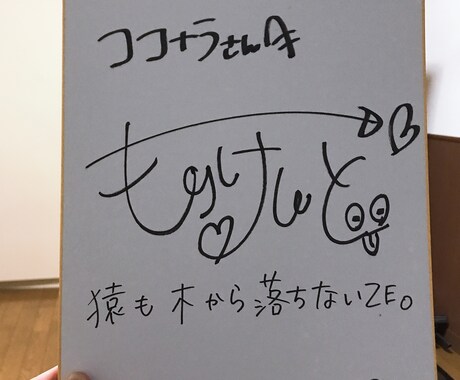 ココナラさんへ
もりけんと
猿も木から落ちないZEO